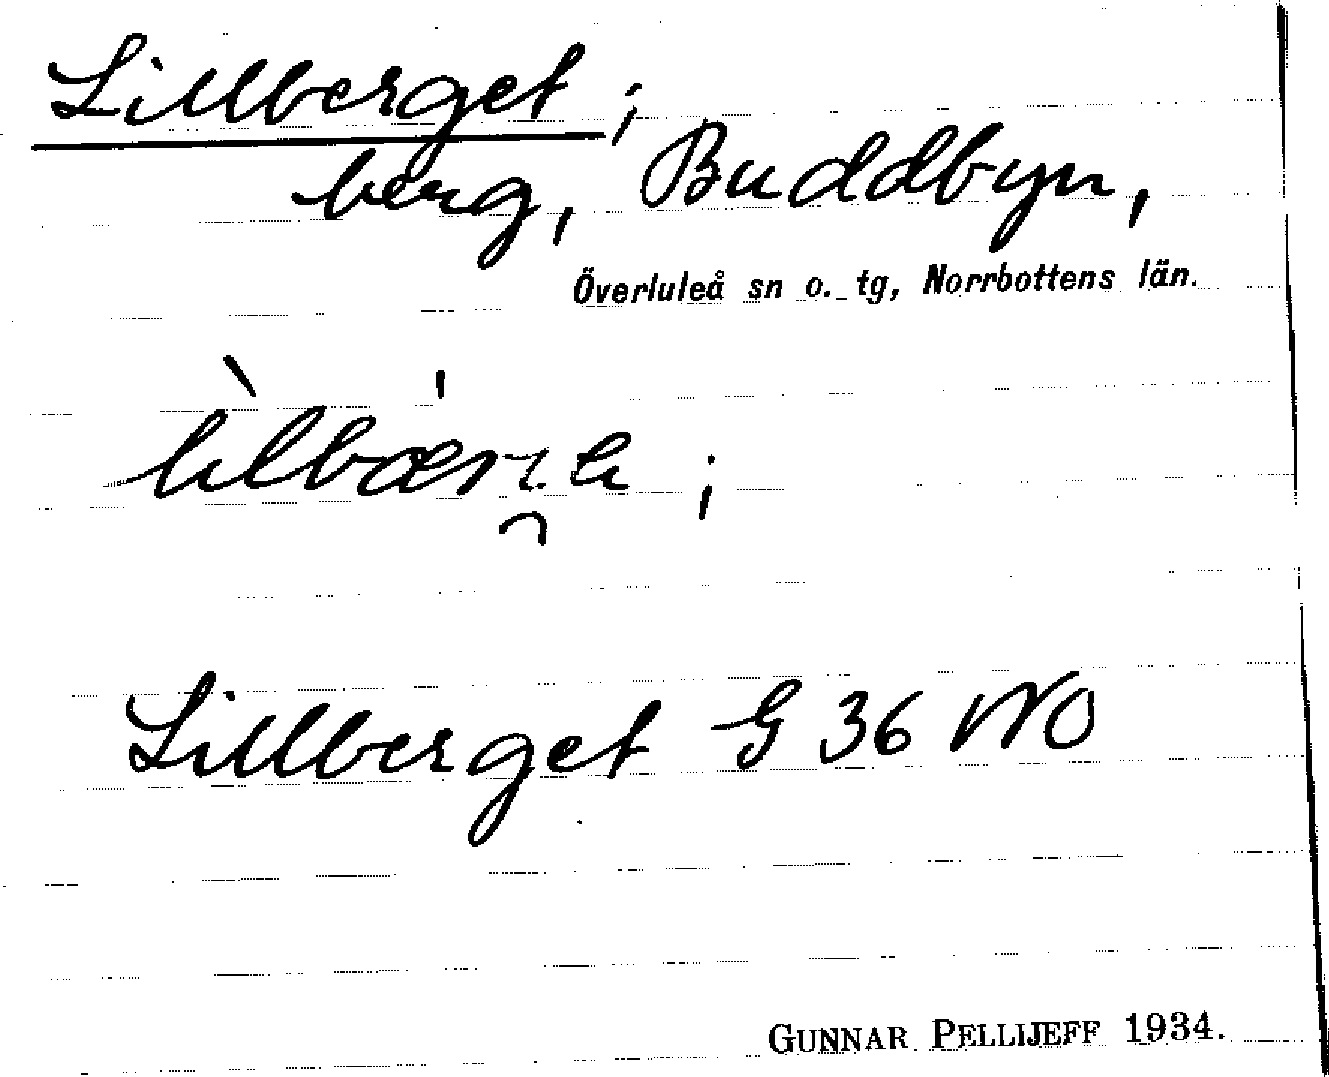 Lillberget;
berg, Buddbyn,
Överluleå sn o. tg, Norrbottens län.
Lillberget G 36 NO
GUNNAR PELLIJEFF 1934.